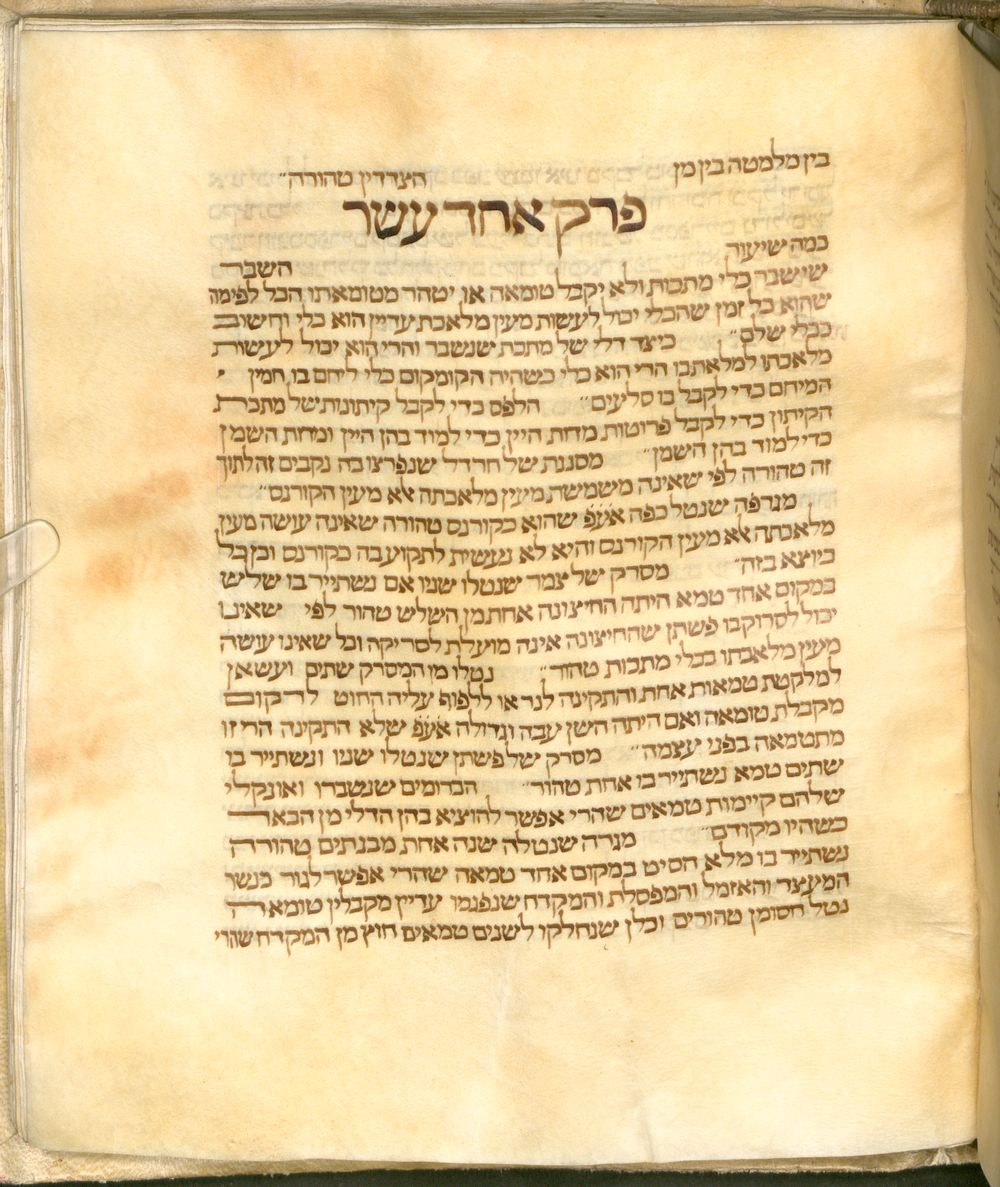 בין מלמטה בין מן
הצדדין טהורה״
פרק אחד עשר
כמה שיעור
השבר
שישבר כלי מתכות ולא יקבל טומאה או יטהר מטומאתו הכל לפי מה
שהוא כל זמן שהכלי יכול לעשות מעין מלאכת עדיין הוא כלי וחשוב
ככלי שלם״ כיצד דלי של מתכת שנשבר והרי הוא יכול לעשות
מלאכתו למלאת בו הרי הוא כלי כשהיה הקומקום כדי ליחם בו חמין
המיחם כדי לקבל בו סלעים״ הלפס כדי לקבל קיתונות של מתכת
הקיתון כדי לקבל פרוטות מדת היין כדי למוד בהן היין ומדת השמן
כדי למוד בהן השמן״ מסננת של חרדל שנפרצו בה נקבים זה לתוך
זה טהורה לפי שאינה משמשת מעין מלאכתה
מגרפה שנטל כפה אעפ שהוא כקורנס טהורה שאינה עושה מעין
מלאכתה אלא מעין הקורנס והיא לא נעשית לתקוע בה כקורנס וכן כל
כיוצא בזה״ מסרק של צמר שנטלו שניו אם נשתייר בו שליש
במקום אחד טמא היתה החיצונה אחת מן השלש טהור לפי שאינו
יכול לסרוק בו פשתן שהחיצונה אינה מועלת לסריקה וכל שאינו עושה
מעין מלאכתו בכלי מתכות טהור״ נטלו מן המסרק שתים ועשאן
למלקטת טמאות אחת והתקינה לנר או ללפוף עליה החוט לרקום
מקבלת טומאה ואם היתה השן עבה וגדולה אעפ שלא התקינה הרי זו
מתטמאה בפני עצמה״ מסרק של פשתן שנטלו שניו ונשתייר בו
שתים טמא נשתייר בו אחת טהור״ הכדומים שנשברו ואונקלי
שלהם קיימות טמאים שהרי אפשר להוציא בהן הדלי מן הבאר
כשהיו מקודם״ מגרה שנטלה שנה אחת מבנתים טהורה
נשתייר בו מלא הסיט במקום אחד טמאה שהרי אפשר לגור
המיעצר והאזמל והמפסלת והמקדח שנפגמו עדיין מקבלין טומאה
נטל חסומן טהורים וכלן שנחלקו לשנים טמאים חוץ מן המקדח שהרי